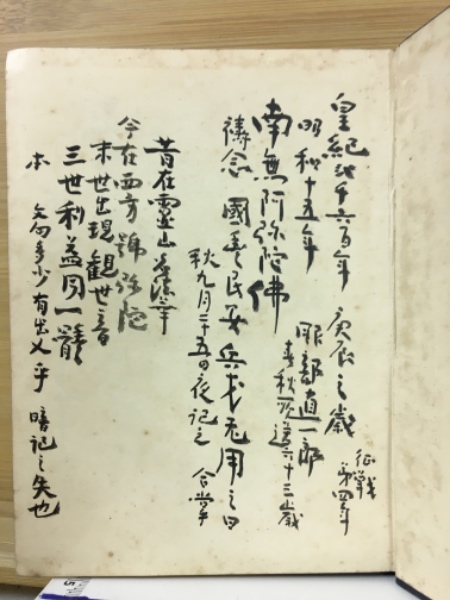 皇紀弍千六百年 庚辰之歳
征戦
第四年
昭和十五年 服部直一郎
春秋既送六十三歳
南無阿弥陀佛
祷念 國豊民安兵戈无用之日
秋九月二十五日夜記之 合掌
昔在靈山名法華
今在西方號弥陀
末世出現観世音
三世利益同一體
本文句多少有出入乎 暗記之失也